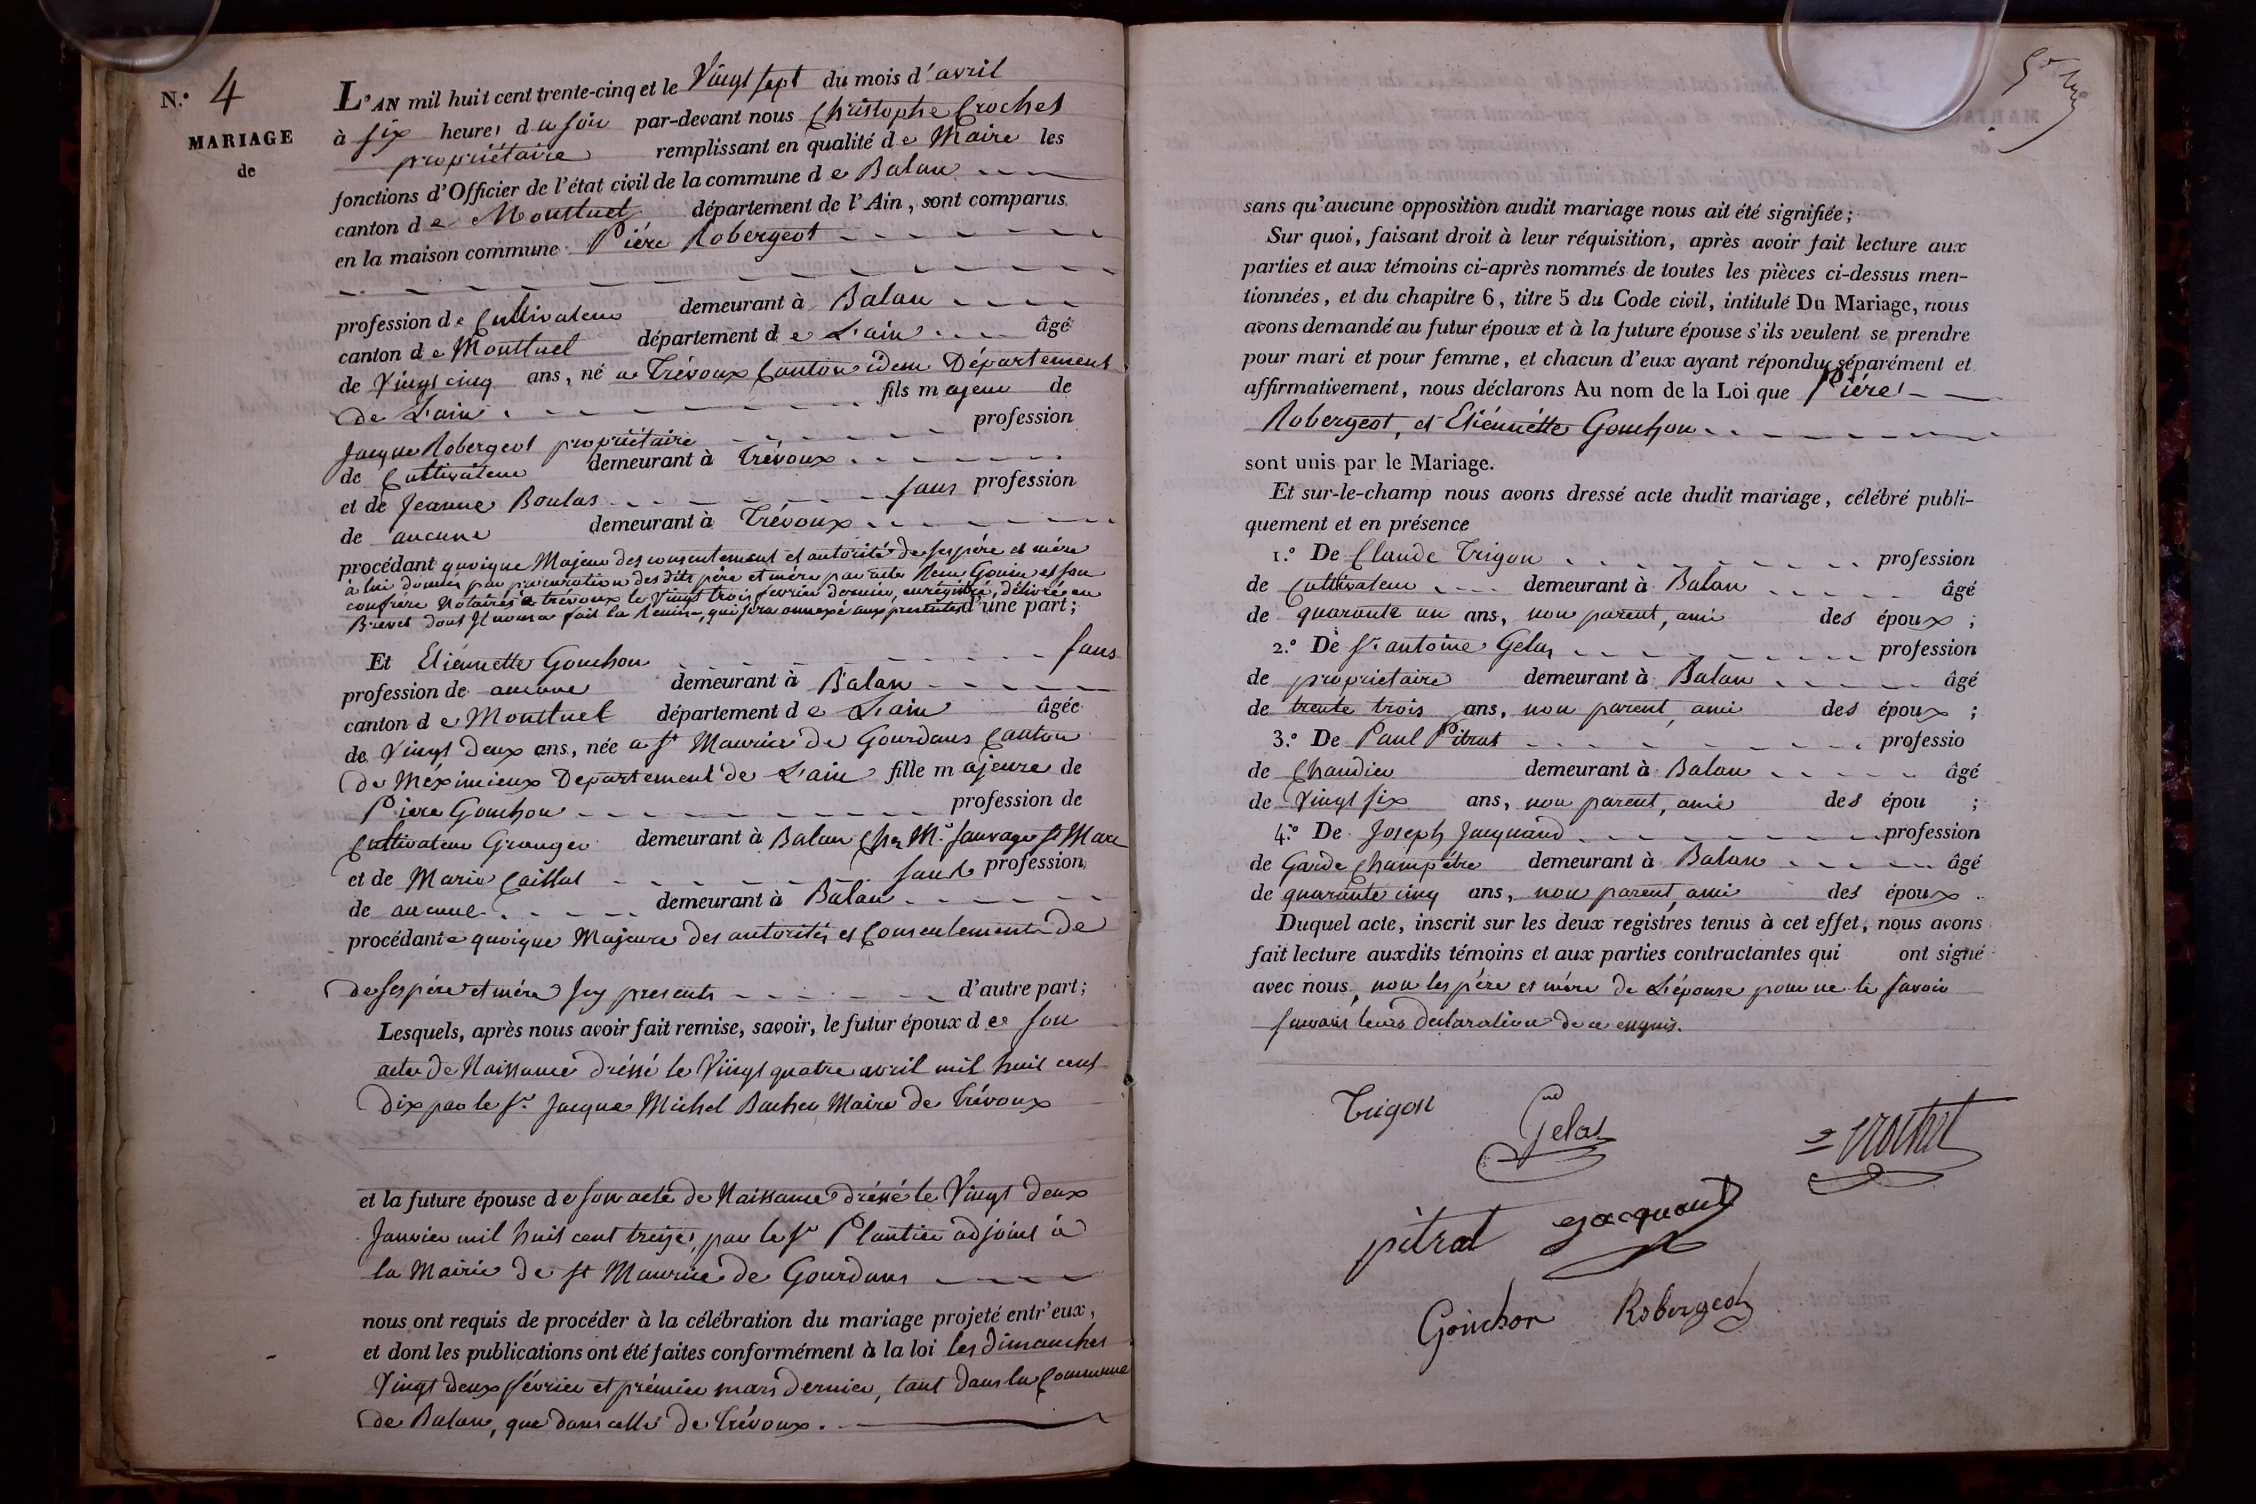 N.° 4
MARIAGE
de
L'AN mil huit cent trente-cinq et le Vingt sept du mois d'avril
à six heures du soir par-devant nous Christophe Crochet
propriétaire remplissant en qualité de Maire les
fonctions d'Officier de l'état civil de la commune de Balan
canton de Montluel département de l'Ain, sont comparus
en la maison commune Piére Robergeot
profession de Cultivateur demeurant à Balan
canton de Montluel département de L'ain âgé
de Vingt cinq ans, né a Trévoux Canton idem Département
de L'ain fils majeur de
Jacque Robergeot propriétaire profession
de Cultivateur demeurant à Trévoux
et de Jeanne Boulas sans profession
de aucune demeurant à Trévoux
procédant quoique Majeur des consentement et autorité de ses père et mère
à lui donnés par procuration des dits père et mère par acte Reçu Gonin et son
confrère Notaires à trévoux le Vingt trois fevrier dernier, enrégistré, délivré en
Brevet dont Il nous a fait la Remise, qui sera annexé aux presentes d'une part;
Et Etiénnette Gouchon sans
profession de aucune demeurant à Balan
canton de Montluel département de L'ain âgée
de Vingt deux ans, née a St Maurice de Gourdans Canton
de Méximieux Departement de L'ain fille majeure de
Piere Gouchon profession de
Cultivateur Granger demeurant à Balan Chez Mr. Sauvage St Marc
et de Marie Caillat sans profession
de aucune demeurant à Balan
procédante quoique Majeure des autorités et Consentements de
de ses père et mère Icy presents d'autre part;
Lesquels, après nous avoir fait remise, savoir, le futur époux de son
acte de Naissance dréssé le Vingt quatre avril mil huit cent
dix par le Sr. Jacque Michel Bacheu Maire de Trévoux
et la future épouse de son acte de Naissance dréssé le Vingt deux
Janvier mil huit cent treize, par le Sr Plantier adjoint à
la Mairie de St Maurice de Gourdans
nous ont requis de procéder à la célébration du mariage projeté entr'eux,
et dont les publications ont été faites conformément à la loi les dimanches
Vingt deux février et prémier mars dernier, tant dans la Commune
de Balan, que dans celle de Trévoux.
sans qu'aucune opposition audit mariage nous ait été signifiée;
Sur quoi, faisant droit à leur réquisition, après avoir fait lecture aux
parties et aux témoins ci-après nommés de toutes les pièces ci-dessus men-
tionnées, et du chapitre 6, titre 5 du Code civil, intitulé Du Mariage, nous
avons demandé au futur époux et à la future épouse s'ils veulent se prendre
pour mari et pour femme, et chacun d'eux ayant répondu séparément et
affirmativement, nous déclarons Au nom de la Loi que Piére
Robergeot, et Etiénnétte Gouchon
sont unis par le Mariage.
Et sur-le-champ nous avons dressé acte dudit mariage, célébré publi-
quement et en présence
1.° De Claude Trigon profession
de Cultivateur demeurant à Balan âgé
de quarante un ans, non parent, ami des époux ;
2.° De Sr. antoine Gelas profession
de proprietaire demeurant à Balan âgé
de trente trois ans, non parent, ami des époux ;
3.° De Paul Pitrat professio
de Chandier demeurant à Balan âgé
de Vingt six ans, non parent, ami des épou ;
4.° De Joseph Jacquand profession
de Garde Champétre demeurant à Balan âgé
de quarante cinq ans, non parent, ami des époux .
Duquel acte, inscrit sur les deux registres tenus à cet effet, nous avons
fait lecture auxdits témoins et aux parties contractantes qui ont signé
avec nous, non les père et mère de L'épouse pour ne le savoir
suivant leurs declaration de ce enquis.
Trigon Gelas Crochet
pitrat Jacquand
Gouchon Robergeot